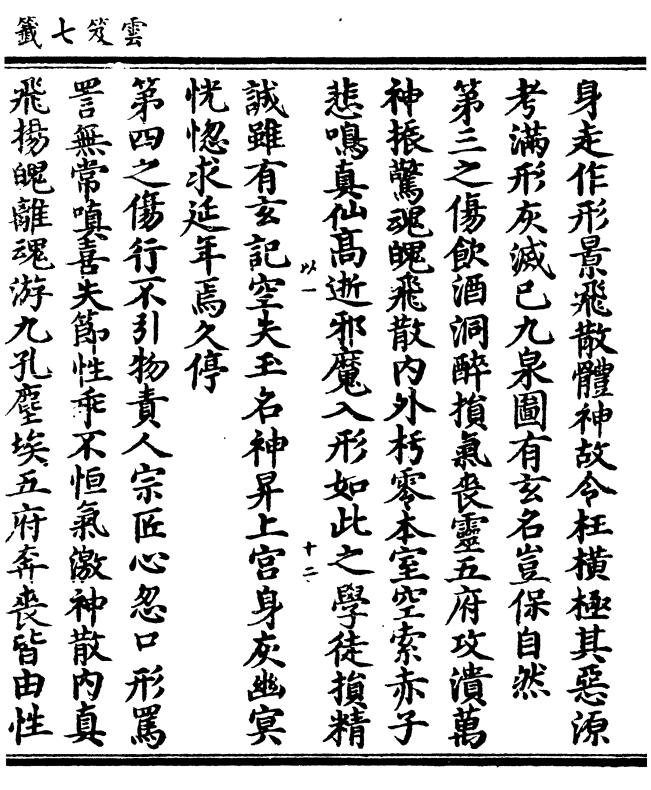 雲笈七籤
身走作形景飛散體神故令枉橫極其惡源
考滿形灰滅已九泉圖有玄名豈保自然
第三之傷飲酒洞醉損氣喪靈五府攻潰萬
神振驚魂魄飛散內外朽零本室空索赤子
悲鳴真仙高逝邪魔入形如此之學徒損精
以一
十二
誠雖有玄記空失玉名神昇上宮身灰幽冥
恍惚求延年焉久停
第四之傷行不引物責人宗匠心忽口形罵
詈無常嗔喜失節性乖不恒氣激神散內真
飛揚魄離魂游九孔塵埃五府奔喪皆由性